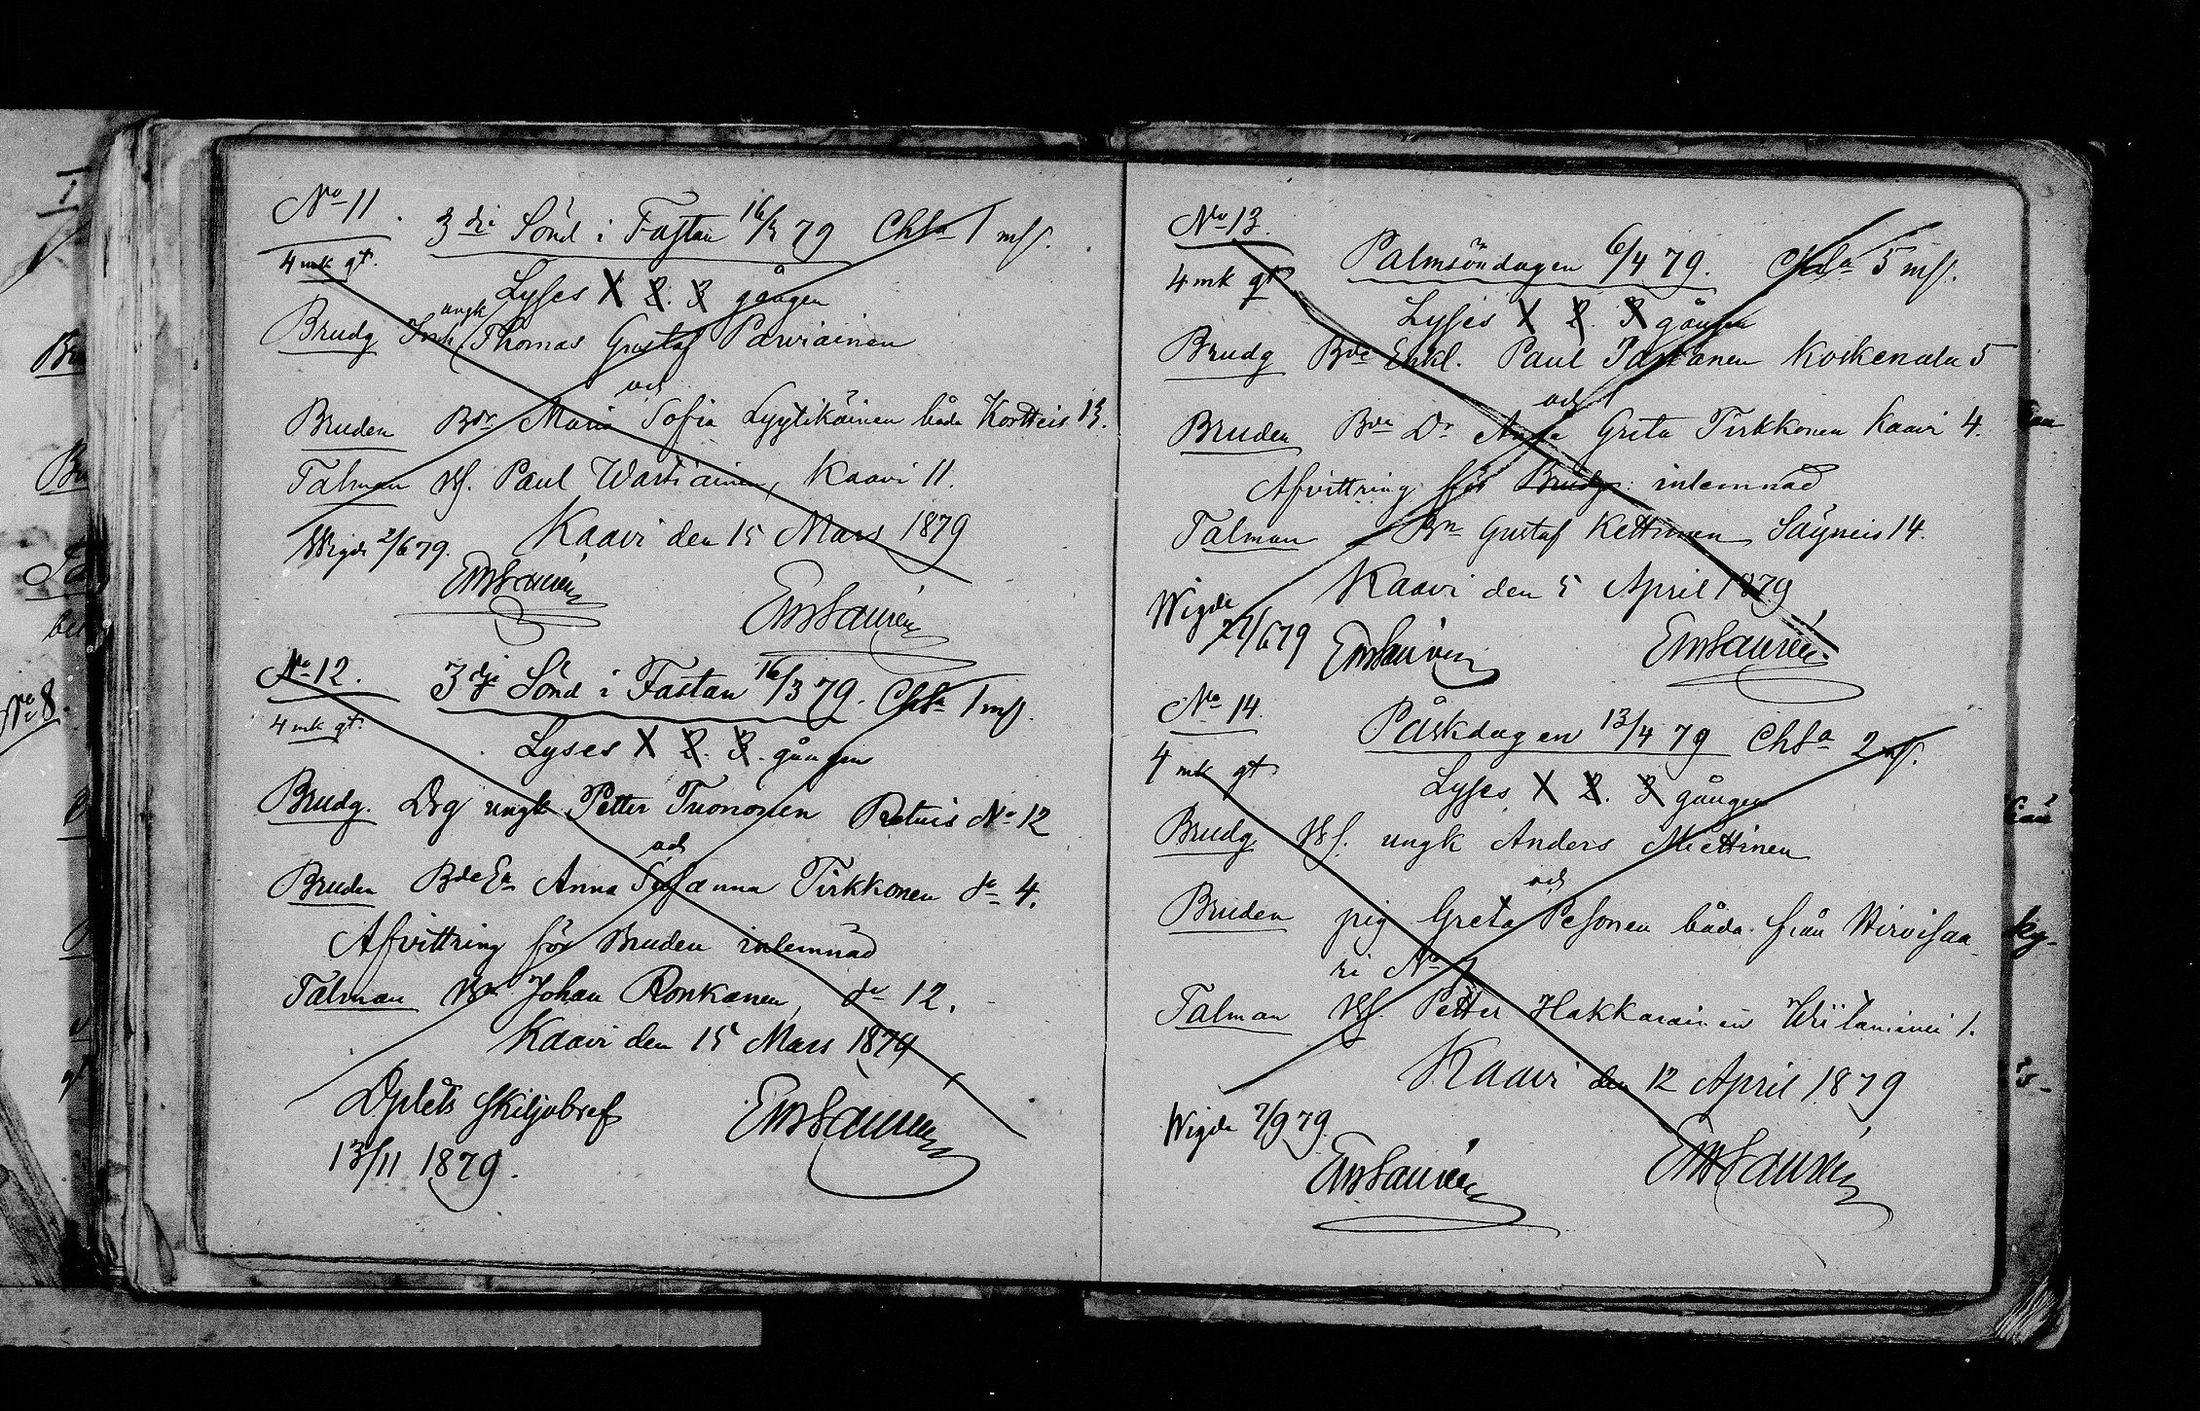 No 11.
3die Sönd i Fastan 16/3 79 Chsa 1 mss.
4 mk gt.
Lyses 1 2. 3 gången
ungk
Brudg Inh Thomas Gustaf Parviainen
och
Bruden Bdr Maria Sofia Lyytikäinen båda Kortteis 13.
Talman Bf. Paul Wartiainen, Kaavi 11.
Kaavi den 15 Mars 1879
Wigde 2/6 79.
EmSaurén
EmSaurén
No 12.
3dje Sönd i Fastan 16/3 79. Chsa 1 mss.
4 mk gt.
Lyses 1 2. 3. gången
Brudg. Drg ungk Petter Tuononen Retuis No 12
och
Bruden Bde En Anna Susanna Tirkkonen do 4.
Afvittring för Bruden inlemnad
Talman Bn Johan Ronkanen, do 12.
Kaavi den 15 Mars 1879
Dplets skiljobref
EmSaurén
13/11 1879.
No 13.
Palmsöndagen 6/4 79. Chsa 5 mss.
4 mk gt
Lyses 1 2. 3 gången
Brudg Bde Enkl. Paul Taskanen Koskenala 5
och
Bruden Bde Dr Anna Greta Tirkkonen Kaavi 4.
Afvittring för Brudg: inlemnad
Talman Bn Gustaf Kettunen Säyneis 14.
Kaavi den 5 April 1879
Wigde
21/6 79
EmSaurén
EmSaurén
No 14.
Påskdagen 13/4 79 Chsa 2 mss.
4 mk gt
Lyses 1 2. 3 gången
Brudg Bf. ungk Anders Miettinen
och
Bruden pig Greta Pesonen båda från Hirvisaa
ri No 1
Talman Bf. Petter Hakkarainen Wiitaniemi 1.
Kaavi den 12 April 1879
Wigde 7/9 79.
EmSaurén
EmSaurén
No 8.